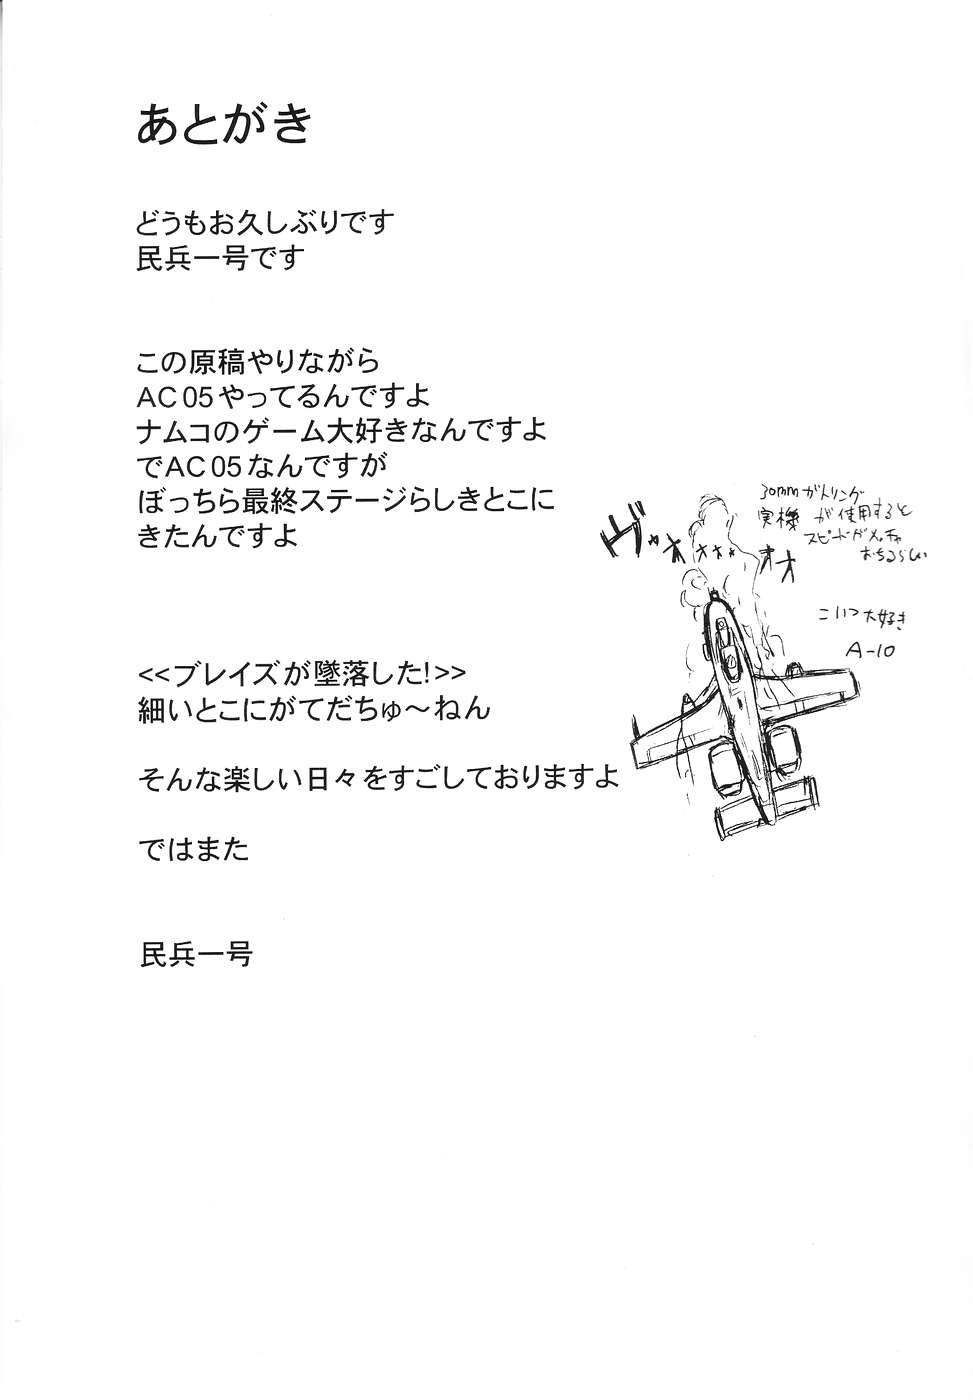 あとがき
どうもお久しぶりです
民兵一号です
この原稿やりながら
AC05やってるんですよ
ナムコのゲーム大好きなんですよ
でAC05なんですが
ぼっちら最終ステージらしきとこに
きたんですよ
<<ブレイズが墜落した!>>
細いとこにがてだちゅ～ねん
そんな楽しい日々をすごしておりますよ
ではまた
民兵一号
30mmガトリング
実機が使用すると
スピードがメッチャ
おちるらしい
ヴァオォォォオオ
こいつ大好き
A-10